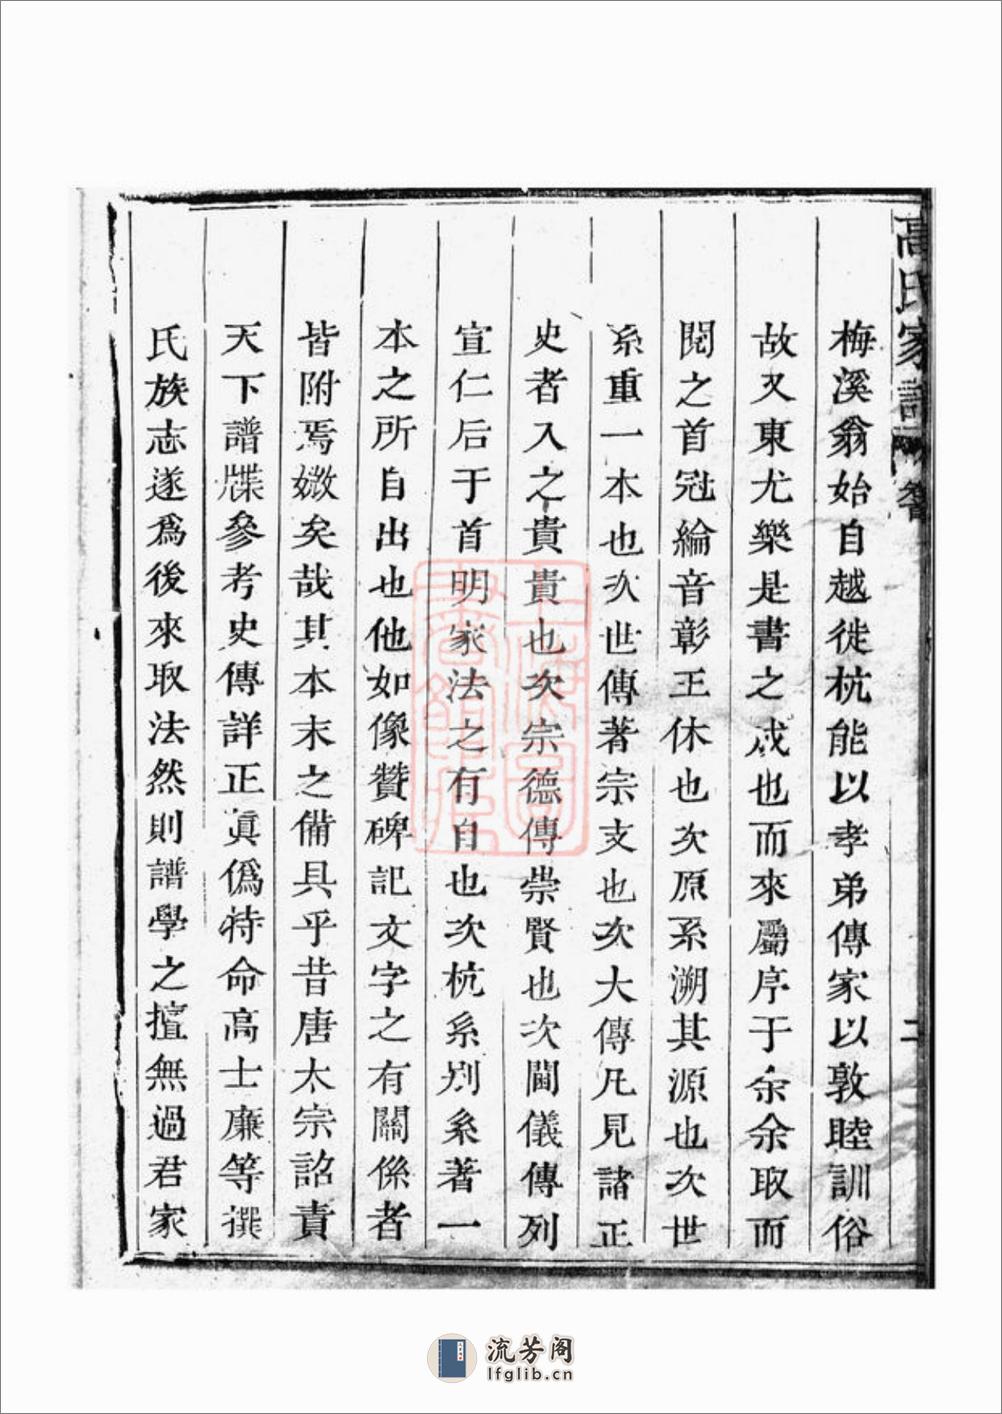 高氏家譜
卷
二
梅溪翁始自越徙杭能以孝弟傳家以敦睦訓俗
故又東尤樂是書之成也而來屬序于余余取而
閱之首冠綸音彰王休也次原系溯其源也次世
系重一本也次世傳著宗支也次大傳凡見諸正
史者入之貴貴也次宗德傳崇賢也次閫儀傳列
宣仁后于首明家法之有自也次杭系别系著一
本之所自出也他如像贊碑記文字之有關係者
皆附焉媺矣哉其本末之備具乎昔唐太宗詔責
天下譜牒參考史傳詳正眞僞特命高士廉等撰
氏族志遂爲後來取法然則譜學之擅無過君家
上海圖書館藏
流芳阁
lfglib.cn